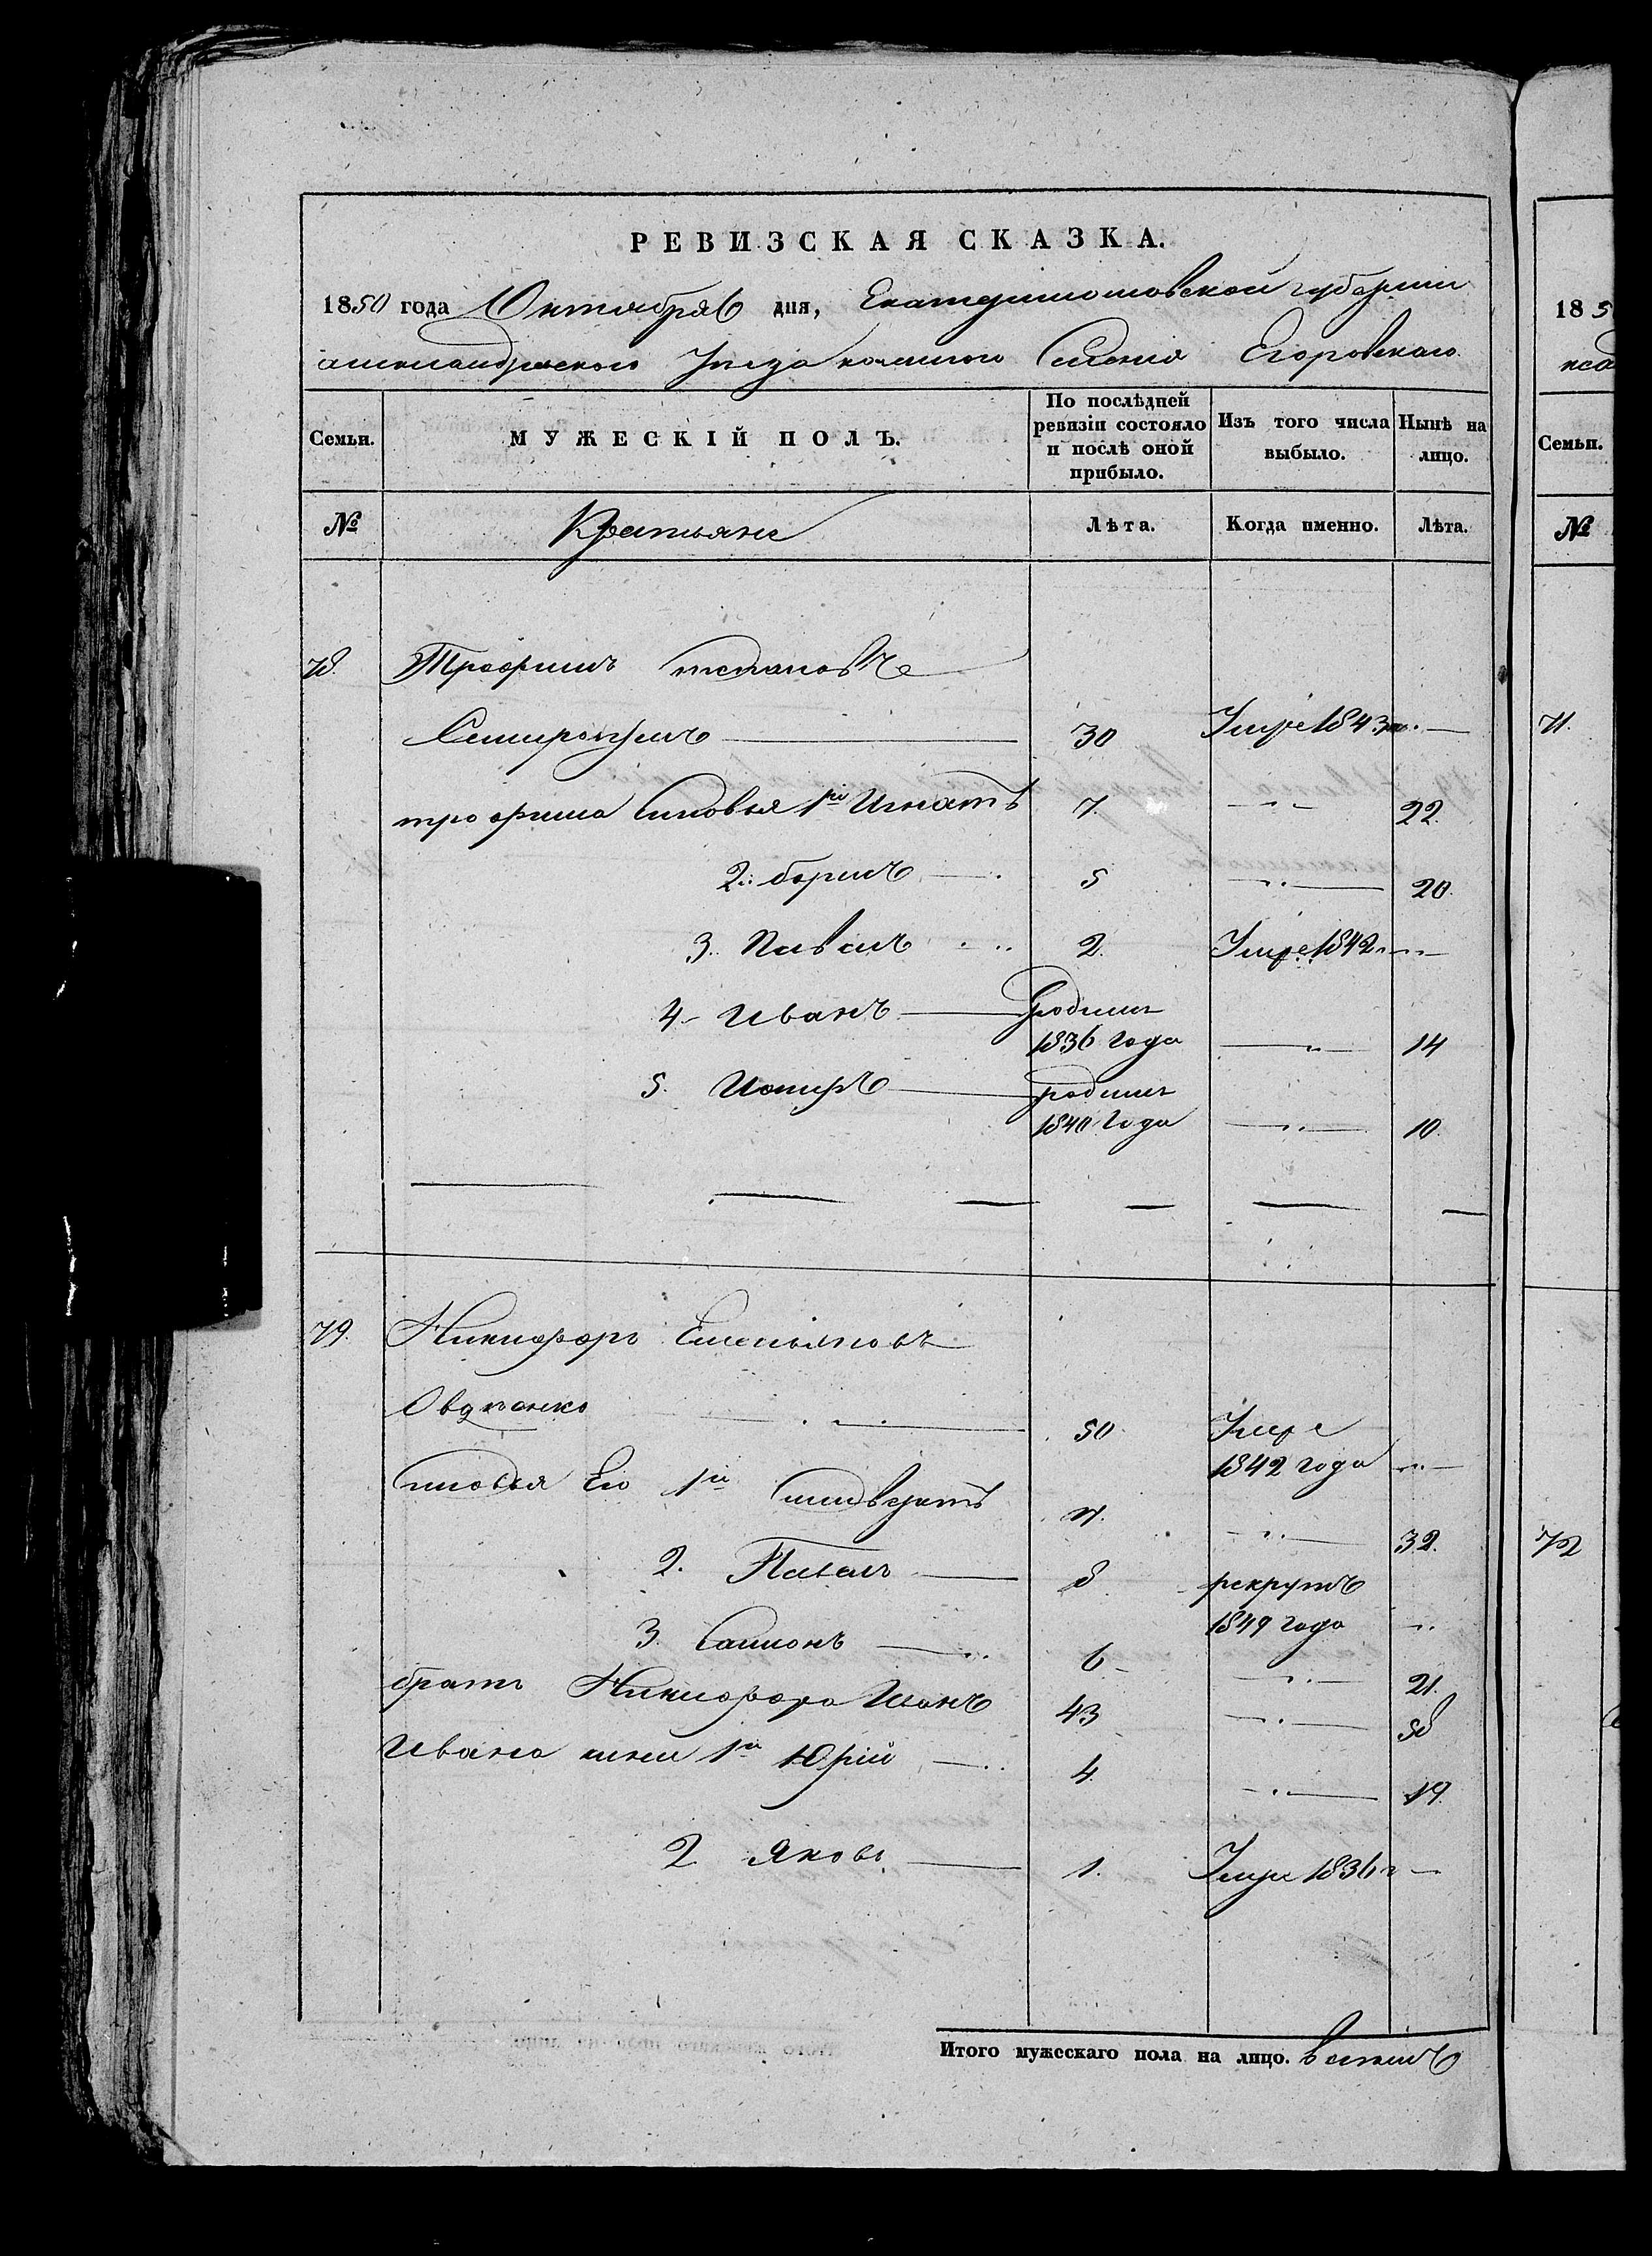 РЕВИЗСКАЯ СКАЗКА.
1850 года Октября 6 дня, Екатеринославской губернии
александровского Уезда казенного Селения Егоровского
Семьи. МУЖЕСКІЙ ПОЛЪ. По послѣдней ревизіи состояло и послѣ оной прибыло. Изъ того числа выбыло. Нынѣ на лицо.
№ Крестьяне Лѣта. Когда именно. Лѣта.
78. Трофимъ степановъ
30 Умре 1843
трофима сыновья 1й Игнатъ 7. 22.
2. борисъ 5 20.
3. Павелъ 2. Умре 1842
4 Иванъ родился
1836 года 14
5. родился
1840 года 10.
79. Никифоръ Емельяновъ
50. Умре
1842 года
сыновья Его 1й 32.
2. Павелъ 8 рекрутъ
1849 года
3. Самионъ 6 21.
братъ Никифора Иванъ 43 58
Ивана сыны 1й Юрій 4. 19.
2 Яковъ 1. Умре 1836 г
Итого мужескаго пола на лицо. восемь
18 5
Семьи.
№
71.
72